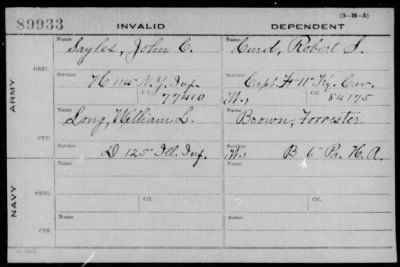 89933 INVALID DEPENDENT (3-H-5)
ARMY
ORIG.
Name Sayles, John C. Name Hurd, Robert S.
Service H 114 N.Y. Inf. Service Capt. H 11 Ky. Cav.
77410 W., Ctf. 84175
CTF.
Name Long, William L. Name Brown, Forrester
Service D 125 Ill. Inf. Service W., B 6 Pa. H. A.
NAVY
ORIG.
Name Name
Service Ctf. Service Ctf.
CTF.
Name Name
Service Service